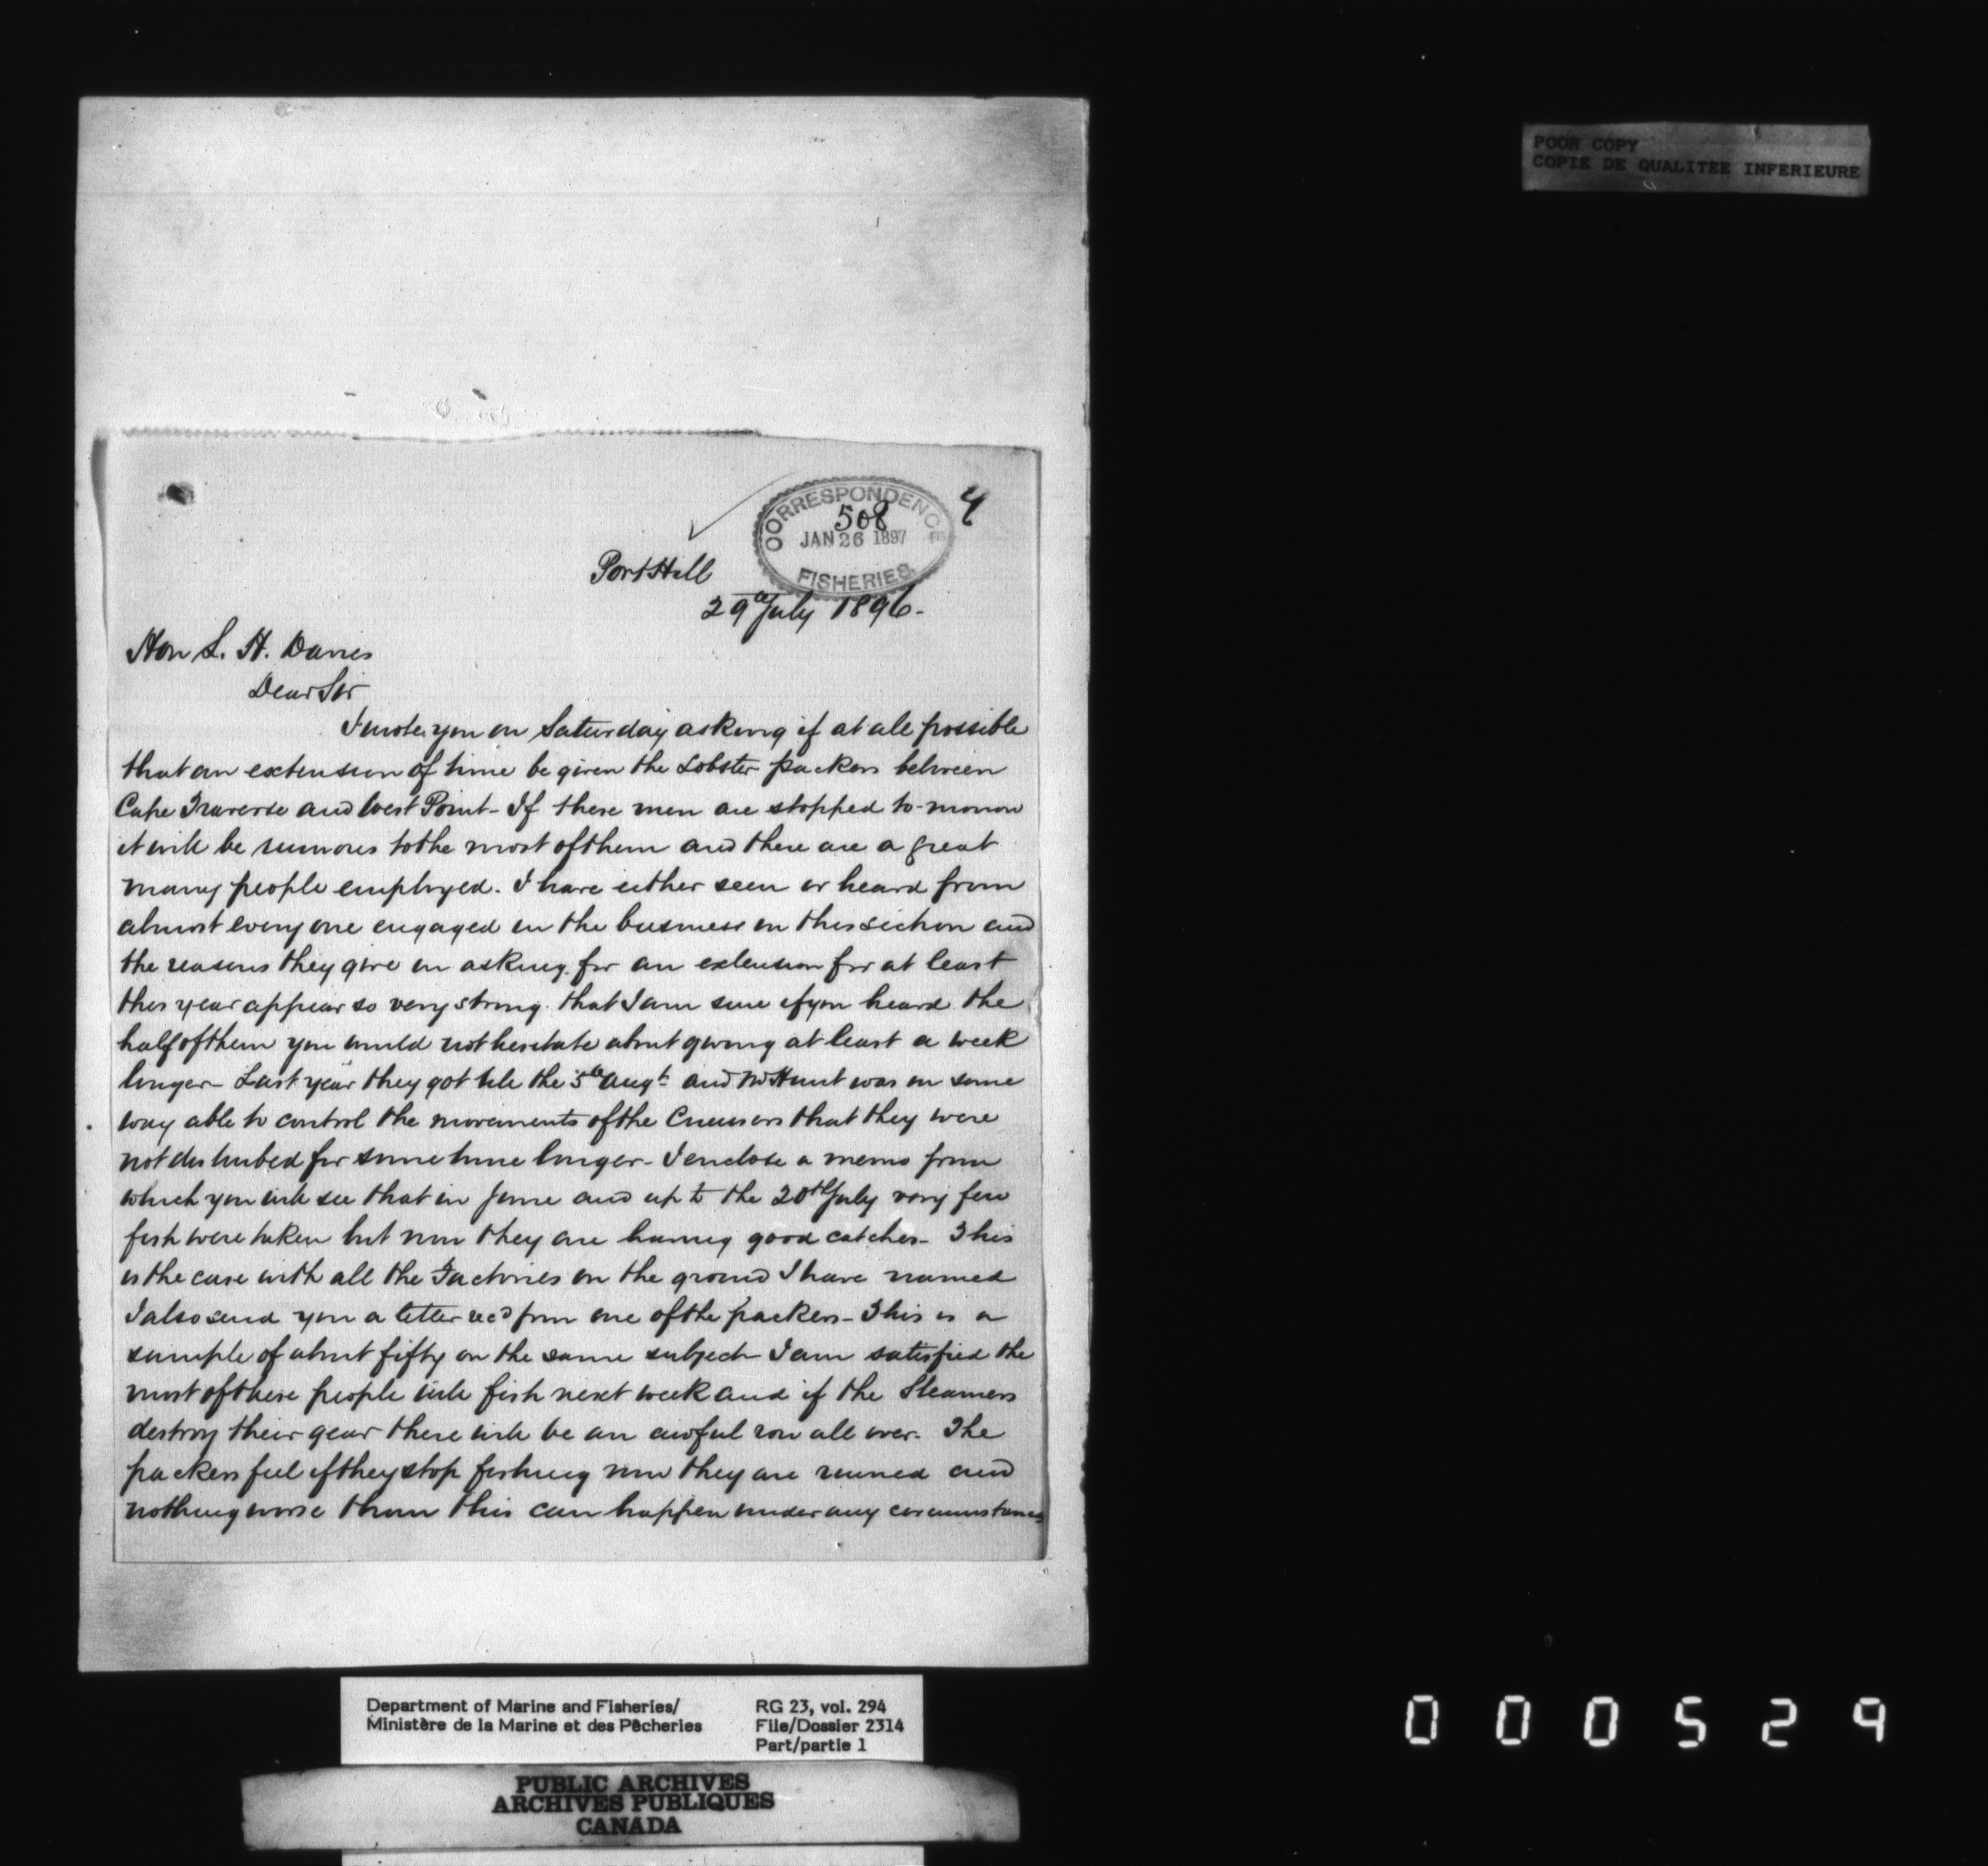 POOR COPY
COPIE DE QUALITEE INFERIEURE
4
CORRESPONDENCE
508
JAN 26 1897
FISHERIES
Port Hill
29th July 1896.
Hon L. H. Davies
Dear Sir
I wrote you on Saturday asking if at all possible
that an extension of time be given the Lobster packers between
Cape Traverse and West Point - If these men are stopped to-morrow
it will be ruinous to the most of them and there are a great
many people employed. I have either seen or heard from
almost every one engaged in the business in this section and
the reasons they give in asking for an extension for at least
this year appear so very strong that I am sure if you heard the
half of them you would not hesitate about giving at least a week
longer - Last year they got till the 5th Augt and Mr Hunt was in some
way able to control the movements of the Cruisers that they were
not disturbed for some time longer - I enclose a memo from
which you will see that in June and up to the 20th July very few
fish were taken but now they are having good catches - This
is the case with all the Factories on the ground I have named
I also send you a letter recd from one of the packers - This is a
sample of about fifty on the same subject - I am satisfied the
most of these people will fish next week and if the Steamers
destroy their gear there will be an awful row all over. The
packers feel if they stop fishing now they are ruined and
nothing worse than this can happen under any circumstances
Department of Marine and Fisheries/
Ministère de la Marine et des Pêcheries
RG 23, vol. 294
File/Dossier 2314
Part/partie 1
PUBLIC ARCHIVES
ARCHIVES PUBLIQUES
CANADA
000529